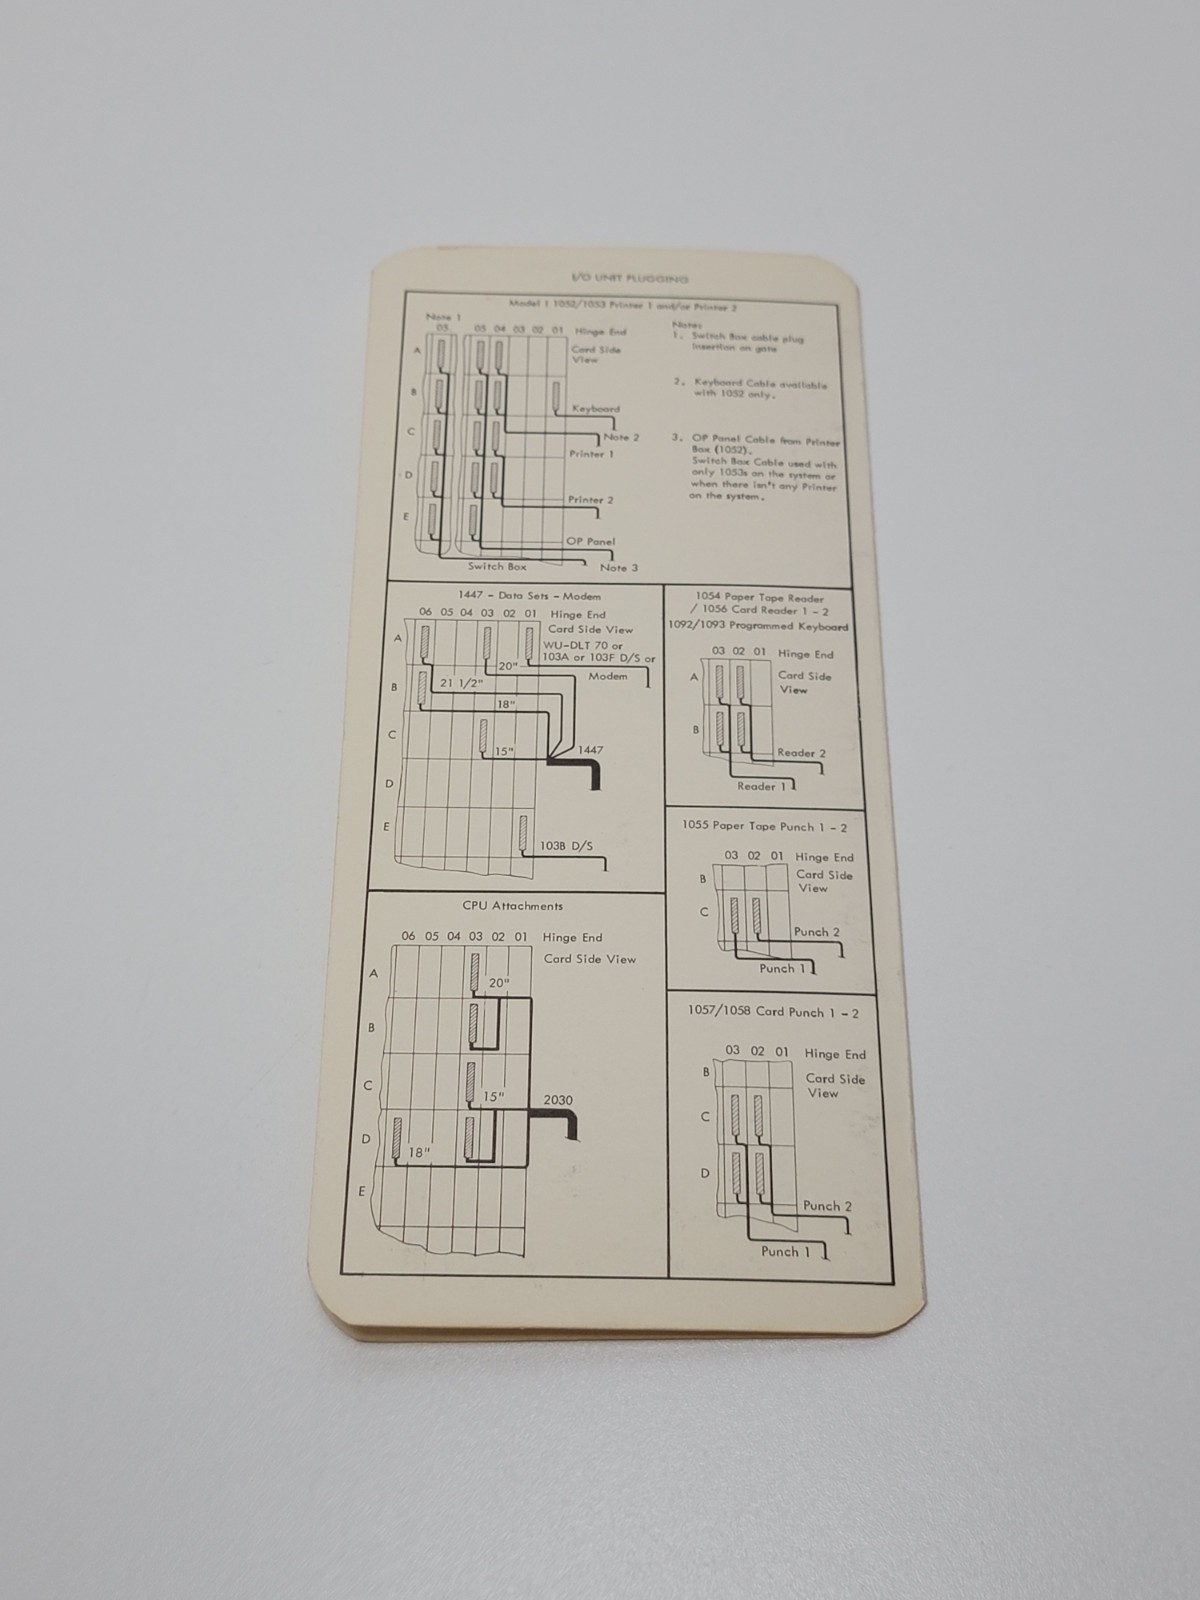 I/O UNIT PLUGGING
Model 1 1052/1053 Printer 1 and/or Printer 2
Note 1
05
05 04 03 02 01 Hinge End
Card Side
View
A
B
C
D
E
Keyboard
Note 2
Printer 1
Printer 2
OP Panel
Switch Box
Note 3
Notes
1. Switch Box cable plug
insertion on gate
2. Keyboard Cable available
with 1052 only.
3. OP Panel Cable from Printer
Box (1052).
Switch Box Cable used with
only 1053s on the system or
when there isn't any Printer
on the system.
1447 - Data Sets - Modem
06 05 04 03 02 01 Hinge End
Card Side View
WU-DLT 70 or
103A or 103F D/S or
Modem
A
B
C
D
E
20"
21 1/2"
18"
15"
1447
103B D/S
1054 Paper Tape Reader
/ 1056 Card Reader 1 - 2
1092/1093 Programmed Keyboard
03 02 01 Hinge End
Card Side
View
A
B
Reader 2
Reader 1
1055 Paper Tape Punch 1 - 2
03 02 01 Hinge End
Card Side
View
B
C
Punch 2
Punch 1
CPU Attachments
06 05 04 03 02 01 Hinge End
Card Side View
A
B
C
D
E
20"
15"
18"
2030
1057/1058 Card Punch 1 - 2
03 02 01 Hinge End
Card Side
View
B
C
D
Punch 2
Punch 1